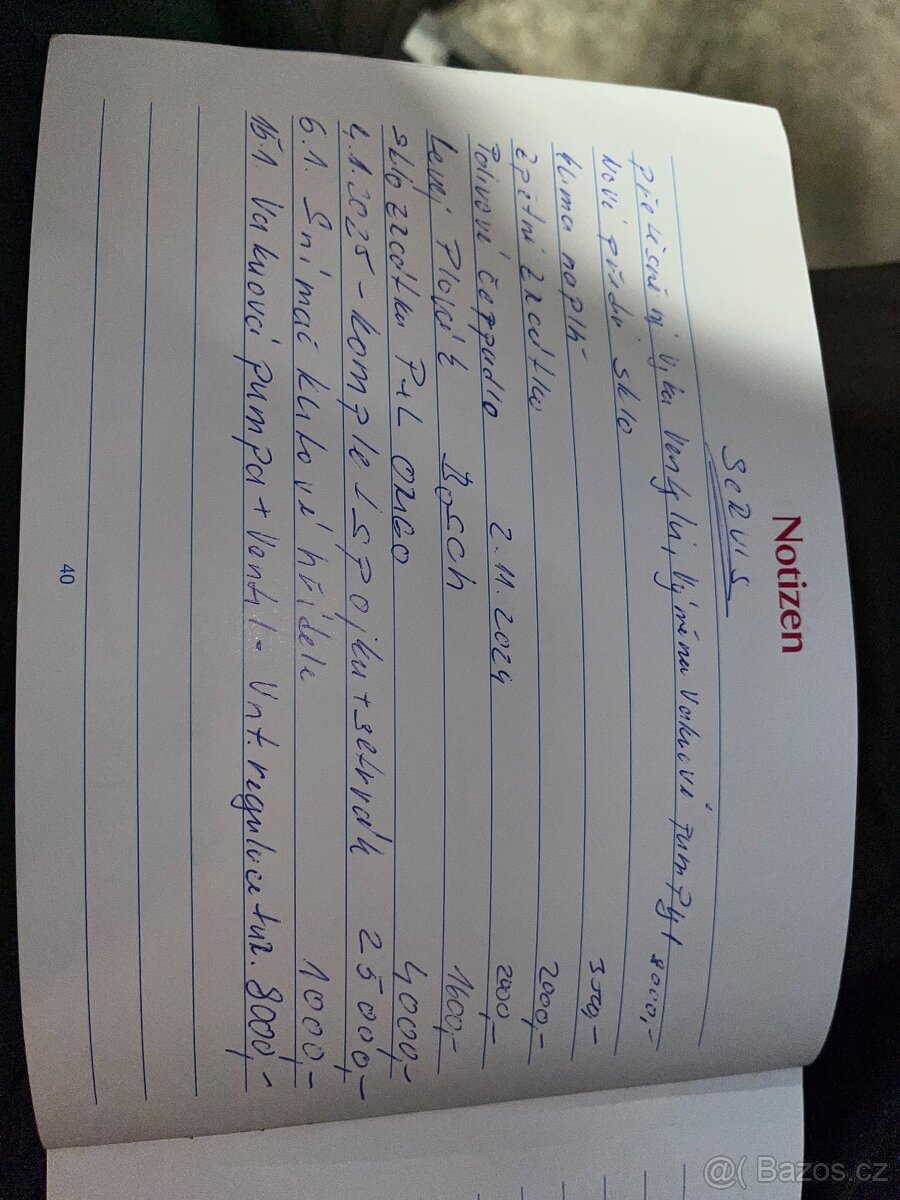 Notizen
Servis
přetěsnění víka ventilů, výměna vakuové pumpy + 8000,-
Nové přední sklo
klima naplň 3500,-
Zpětné zrcátko 2000,-
Palivové čerpadlo 2.11.2024 2000,-
Levej Plovák BOSCH 1600,-
Skla zrcátka P+L ORGO 4000,-
4.1.2025 - komplet spojku + setrvač 25000,-
6.1. Snímač klikové hřídele 1000,-
15.1. Vakuová pumpa + Ventil. Vnt. regulace tur. 8000,-
40
@( Bazos.cz